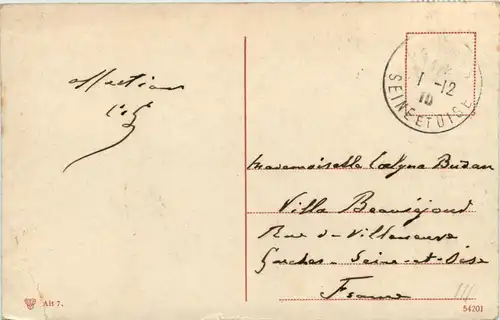 affection
SEINE ET OISE
1 -12
10
Mademoiselle Budan
Villa Beauséjour
Rue de Villeneuve
Garches - Seine-et-Oise
France
Alt 7.
54201